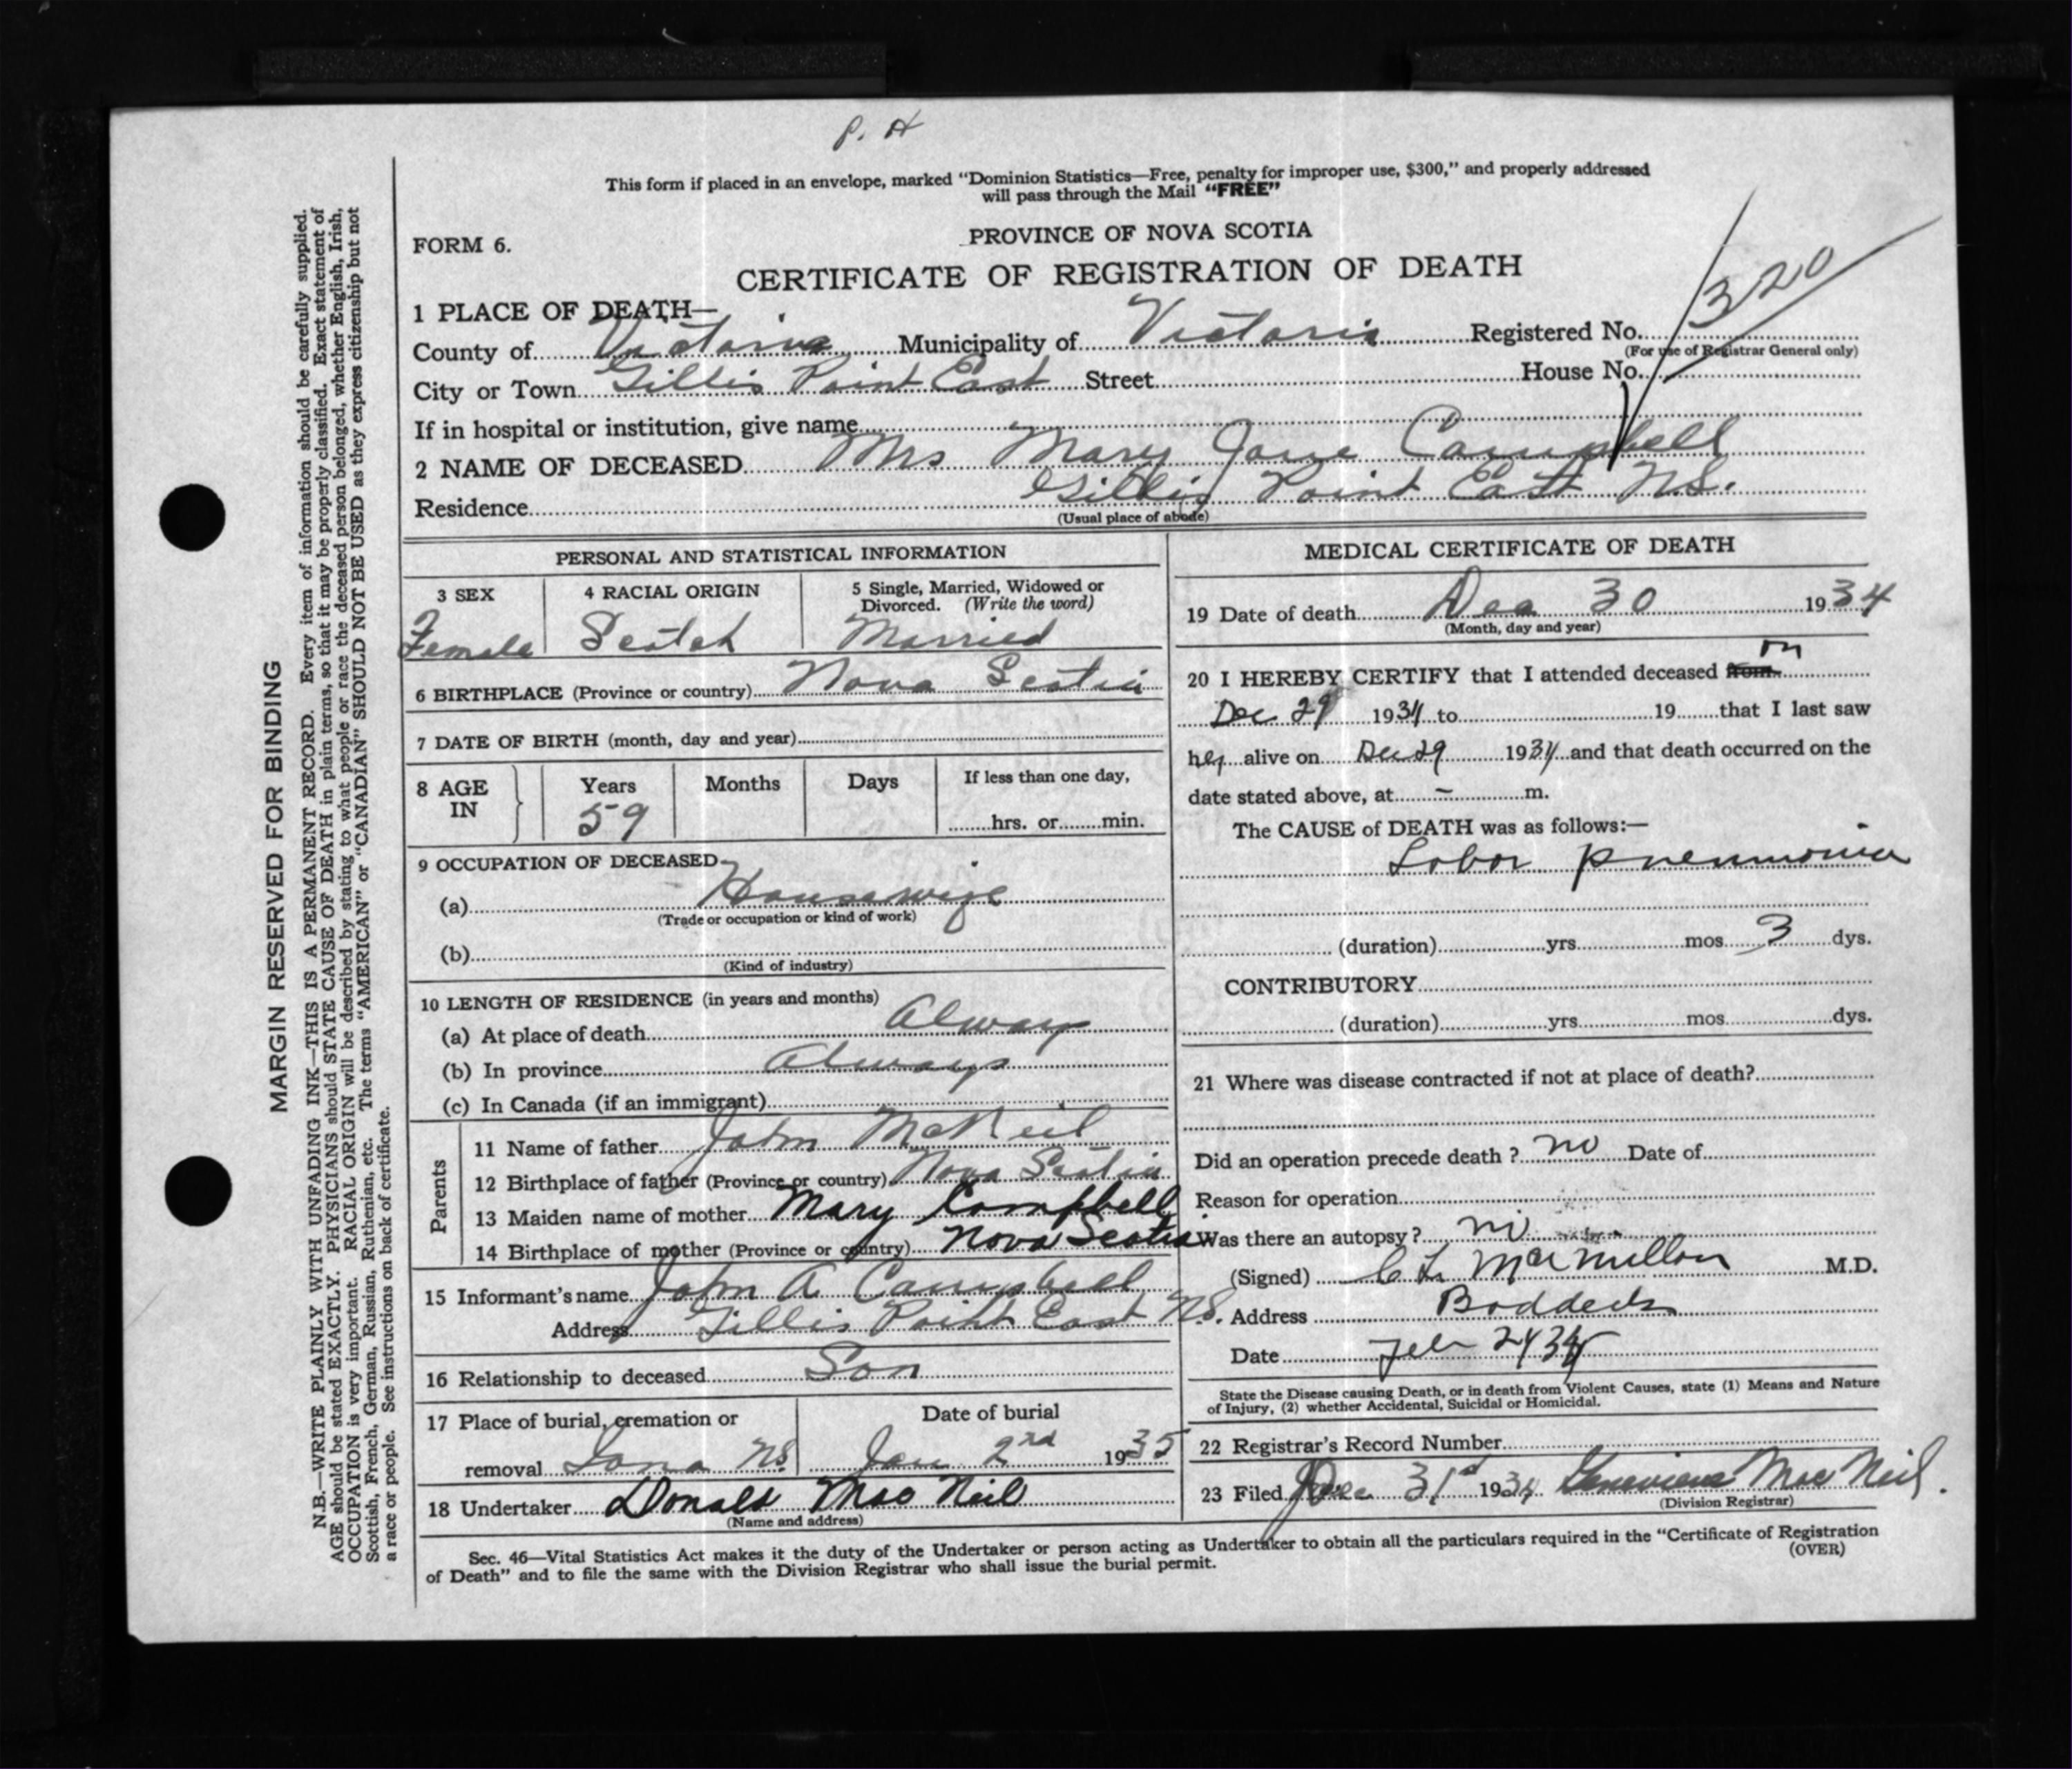 P. H
This form if placed in an envelope, marked “Dominion Statistics—Free, penalty for improper use, $300,” and properly addressed
will pass through the Mail “FREE”
FORM 6.
PROVINCE OF NOVA SCOTIA
CERTIFICATE OF REGISTRATION OF DEATH
1 PLACE OF DEATH—
County of Victoria Municipality of Victoria Registered No. 320
(For use of Registrar General only)
City or Town Gillis Point East Street House No.
If in hospital or institution, give name
2 NAME OF DECEASED Mrs Mary Jane Campbell
Residence Gillis Point East N.S.
(Usual place of abode)
PERSONAL AND STATISTICAL INFORMATION
3 SEX 4 RACIAL ORIGIN 5 Single, Married, Widowed or
Divorced. (Write the word)
Female Scotch Married
6 BIRTHPLACE (Province or country) Nova Scotia
7 DATE OF BIRTH (month, day and year)
8 AGE IN Years Months Days If less than one day,
59 hrs. or min.
9 OCCUPATION OF DECEASED
(a) Housewife
(Trade or occupation or kind of work)
(b)
(Kind of industry)
10 LENGTH OF RESIDENCE (in years and months)
(a) At place of death Always
(b) In province Always
(c) In Canada (if an immigrant)
Parents
11 Name of father John McNeil
12 Birthplace of father (Province or country) Nova Scotia
13 Maiden name of mother Mary Campbell
14 Birthplace of mother (Province or country) Nova Scotia
15 Informant's name John A Campbell
Address Gillis Point East N.S.
16 Relationship to deceased Son
17 Place of burial, cremation or Date of burial
removal Iona N.S. Jan 2nd 1935
18 Undertaker Donald MacNeil
(Name and address)
MEDICAL CERTIFICATE OF DEATH
19 Date of death Dec 30 1934
(Month, day and year)
20 I HEREBY CERTIFY that I attended deceased from on
Dec 29 1934 to 19 that I last saw
her alive on Dec 29 1934 and that death occurred on the
date stated above, at – m.
The CAUSE of DEATH was as follows:—
Lobar pneumonia
(duration) yrs. mos. 3 dys.
CONTRIBUTORY
(duration) yrs. mos. dys.
21 Where was disease contracted if not at place of death?
Did an operation precede death? no Date of
Reason for operation
Was there an autopsy? no
(Signed) C L MacMillan M.D.
Address Baddeck
Date Feb 24
State the Disease causing Death, or in death from Violent Causes, state (1) Means and Nature
of Injury, (2) whether Accidental, Suicidal or Homicidal.
22 Registrar's Record Number
23 Filed Dec 31st 1934 Genevieve MacNeil.
(Division Registrar)
Sec. 46—Vital Statistics Act makes it the duty of the Undertaker or person acting as Undertaker to obtain all the particulars required in the “Certificate of Registration
of Death” and to file the same with the Division Registrar who shall issue the burial permit.
(OVER)
MARGIN RESERVED FOR BINDING
N.B.—WRITE PLAINLY WITH UNFADING INK—THIS IS A PERMANENT RECORD. Every item of information should be carefully supplied.
AGE should be stated EXACTLY. PHYSICIANS should STATE CAUSE OF DEATH in plain terms, so that it may be properly classified. Exact statement of
OCCUPATION is very important. RACIAL ORIGIN will be described by stating to what people or race the deceased person belonged, whether English, Irish,
Scottish, French, German, Russian, Ruthenian, etc. The terms “AMERICAN” or “CANADIAN” SHOULD NOT BE USED as they express citizenship but not
a race or people. See instructions on back of certificate.